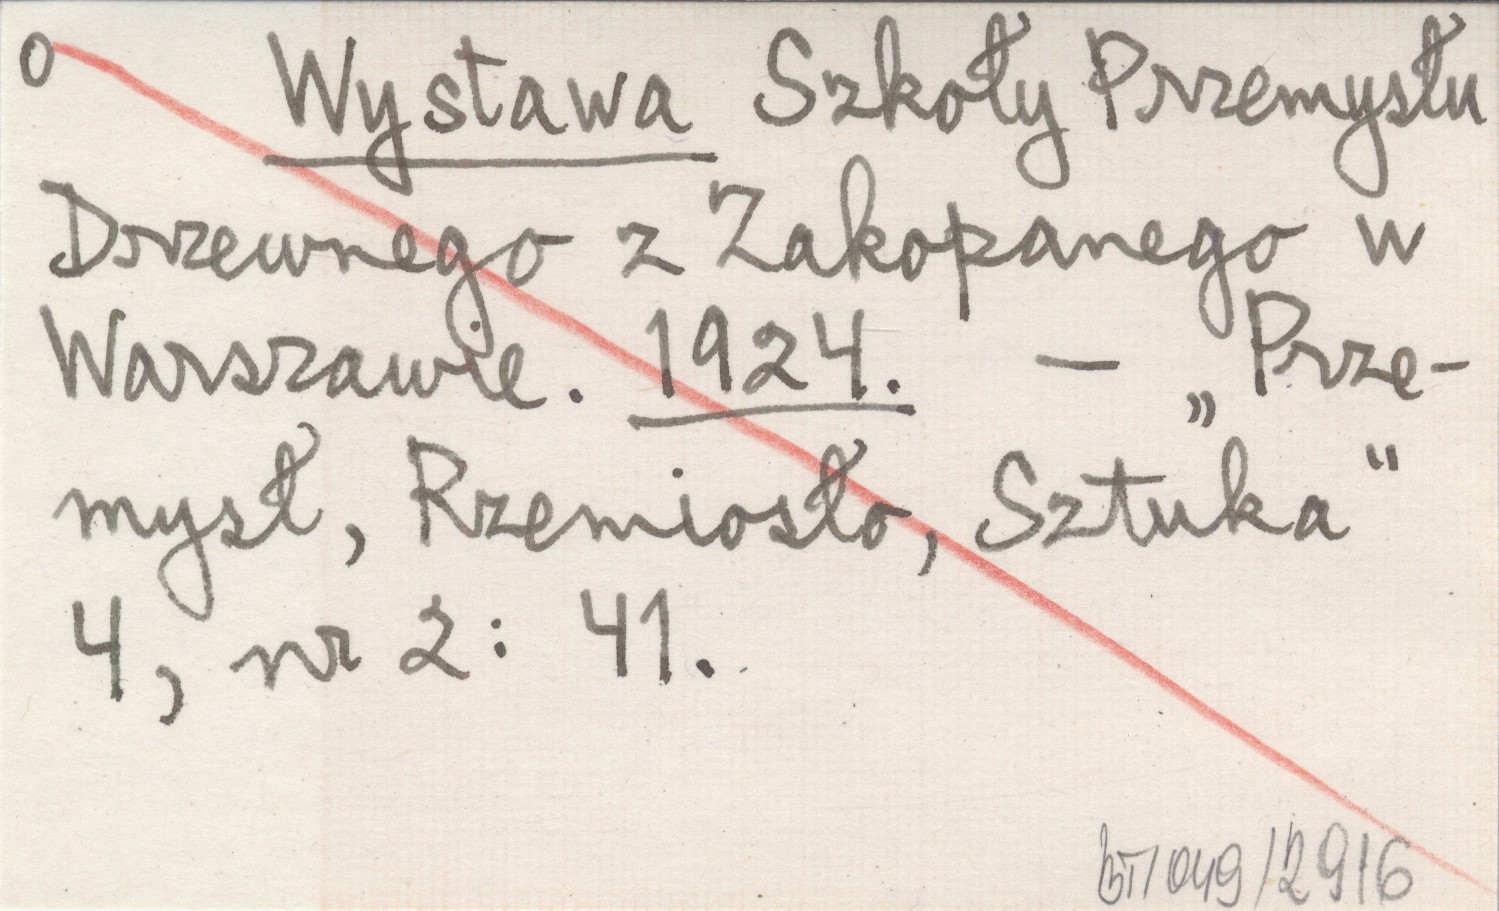 o Wystawa Szkoły Przemysłu
Drzewnego z Zakopanego w
Warszawie. 1924. — „Prze-
mysł, Rzemiosło, Sztuka“
4, nr 2: 41.
BT/049/2916